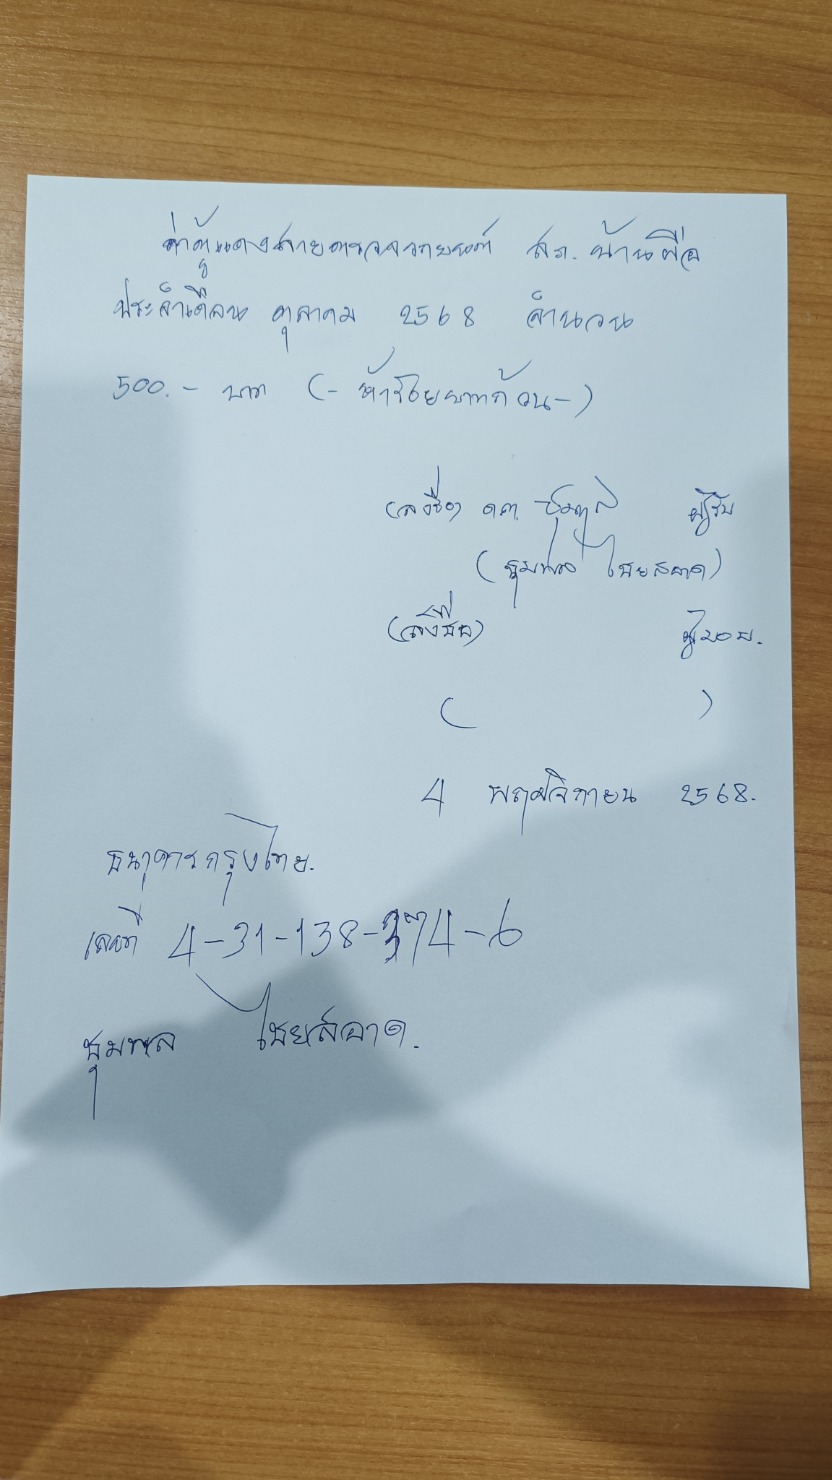 ค่าตู้แดงสายตรวจรถยนต์ สภ. บ้านผือ
ประจำเดือน ตุลาคม 2568 จำนวน
500.- บาท (- ห้าร้อยบาทถ้วน -)
(ลงชื่อ) ดต. ชุมพล ผู้รับ
(ชุมพล ไชยสอาด)
(ลงชื่อ) ผู้มอบ.
( )
4 พฤศจิกายน 2568.
ธนาคารกรุงไทย.
เลขที่ 4-31-138-374-6
ชุมพล ไชยสอาด.